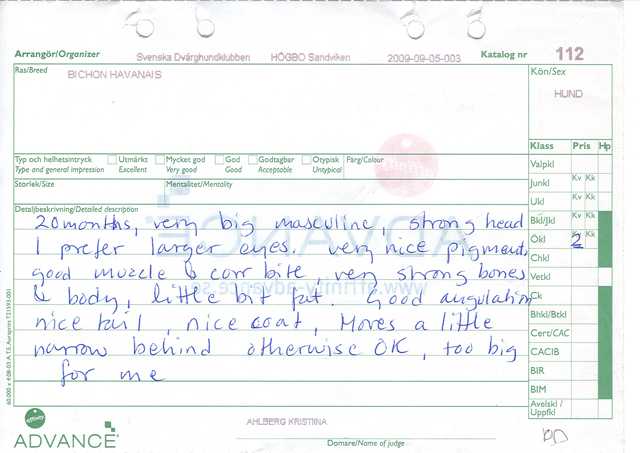 Arrangör/Organizer
Svenska Dvärghundklubben HÖGBO Sandviken 2009-09-05-003 Katalog nr 112
Ras/Breed BICHON HAVANAIS
Kön/Sex
HUND
Klass Pris Hp
Valpkl
Junkl Kv Kk
Ukl Kv Kk
Bkl/Jkl Kv Kk
Ökl Kv Kk 2
Chkl
Vetkl
Ck
Bhkl/Btkl
Cert/CAC
CACIB
BIR
BIM
Avelskl / Uppfkl
Typ och helhetsintryck
Type and general impression
Utmärkt
Excellent
Mycket god
Very good
God
Good
Godtagbar
Acceptable
Otypisk
Untypical
Färg/Colour
Storlek/Size Mentalitet/Mentality
Detaljbeskrivning/Detailed description
20 months, very big masculine, strong head
I prefer larger eyes. very nice pigment,
good muzzle & corr bite, very strong bones
& body, little bit fat. Good angulation
nice tail, nice coat, Moves a little
narrow behind otherwise OK, too big
for me
AHLBERG KRISTIINA
Domare/Name of judge
affinity
ADVANCE